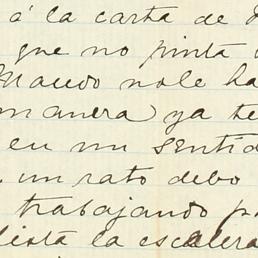 á la carta de
que no pinta
Mando no le ha
manera ya te
en un sentid
un rato debo
trabajando p
lista la escalera